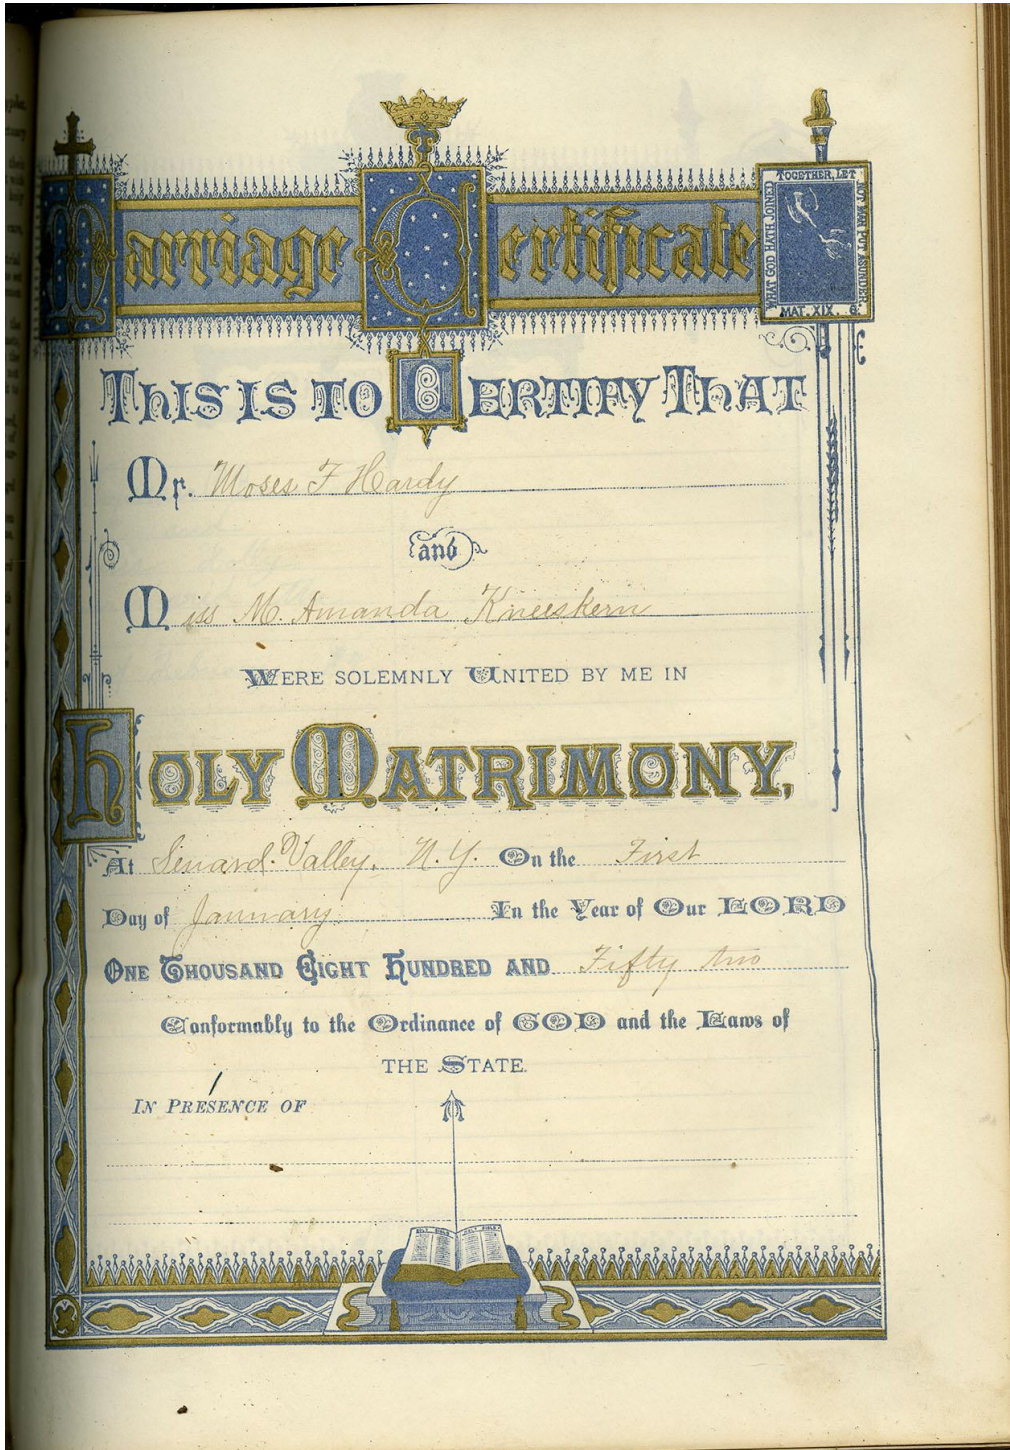 Marriage Certificate
WHAT GOD HATH JOINED TOGETHER, LET NOT MAN PUT ASUNDER.
MAT. XIX. 6.
THIS IS TO CERTIFY THAT
Mr. Moses F Hardy
and
Miss M. Amanda Kneeskern
WERE SOLEMNLY UNITED BY ME IN
HOLY MATRIMONY,
At Valley. N.Y. On the First
Day of January. In the Year of Our LORD
ONE THOUSAND EIGHT HUNDRED AND Fifty two
Conformably to the Ordinance of GOD and the Laws of
THE STATE.
IN PRESENCE OF
HOLY BIBLE HOLY BIBLE